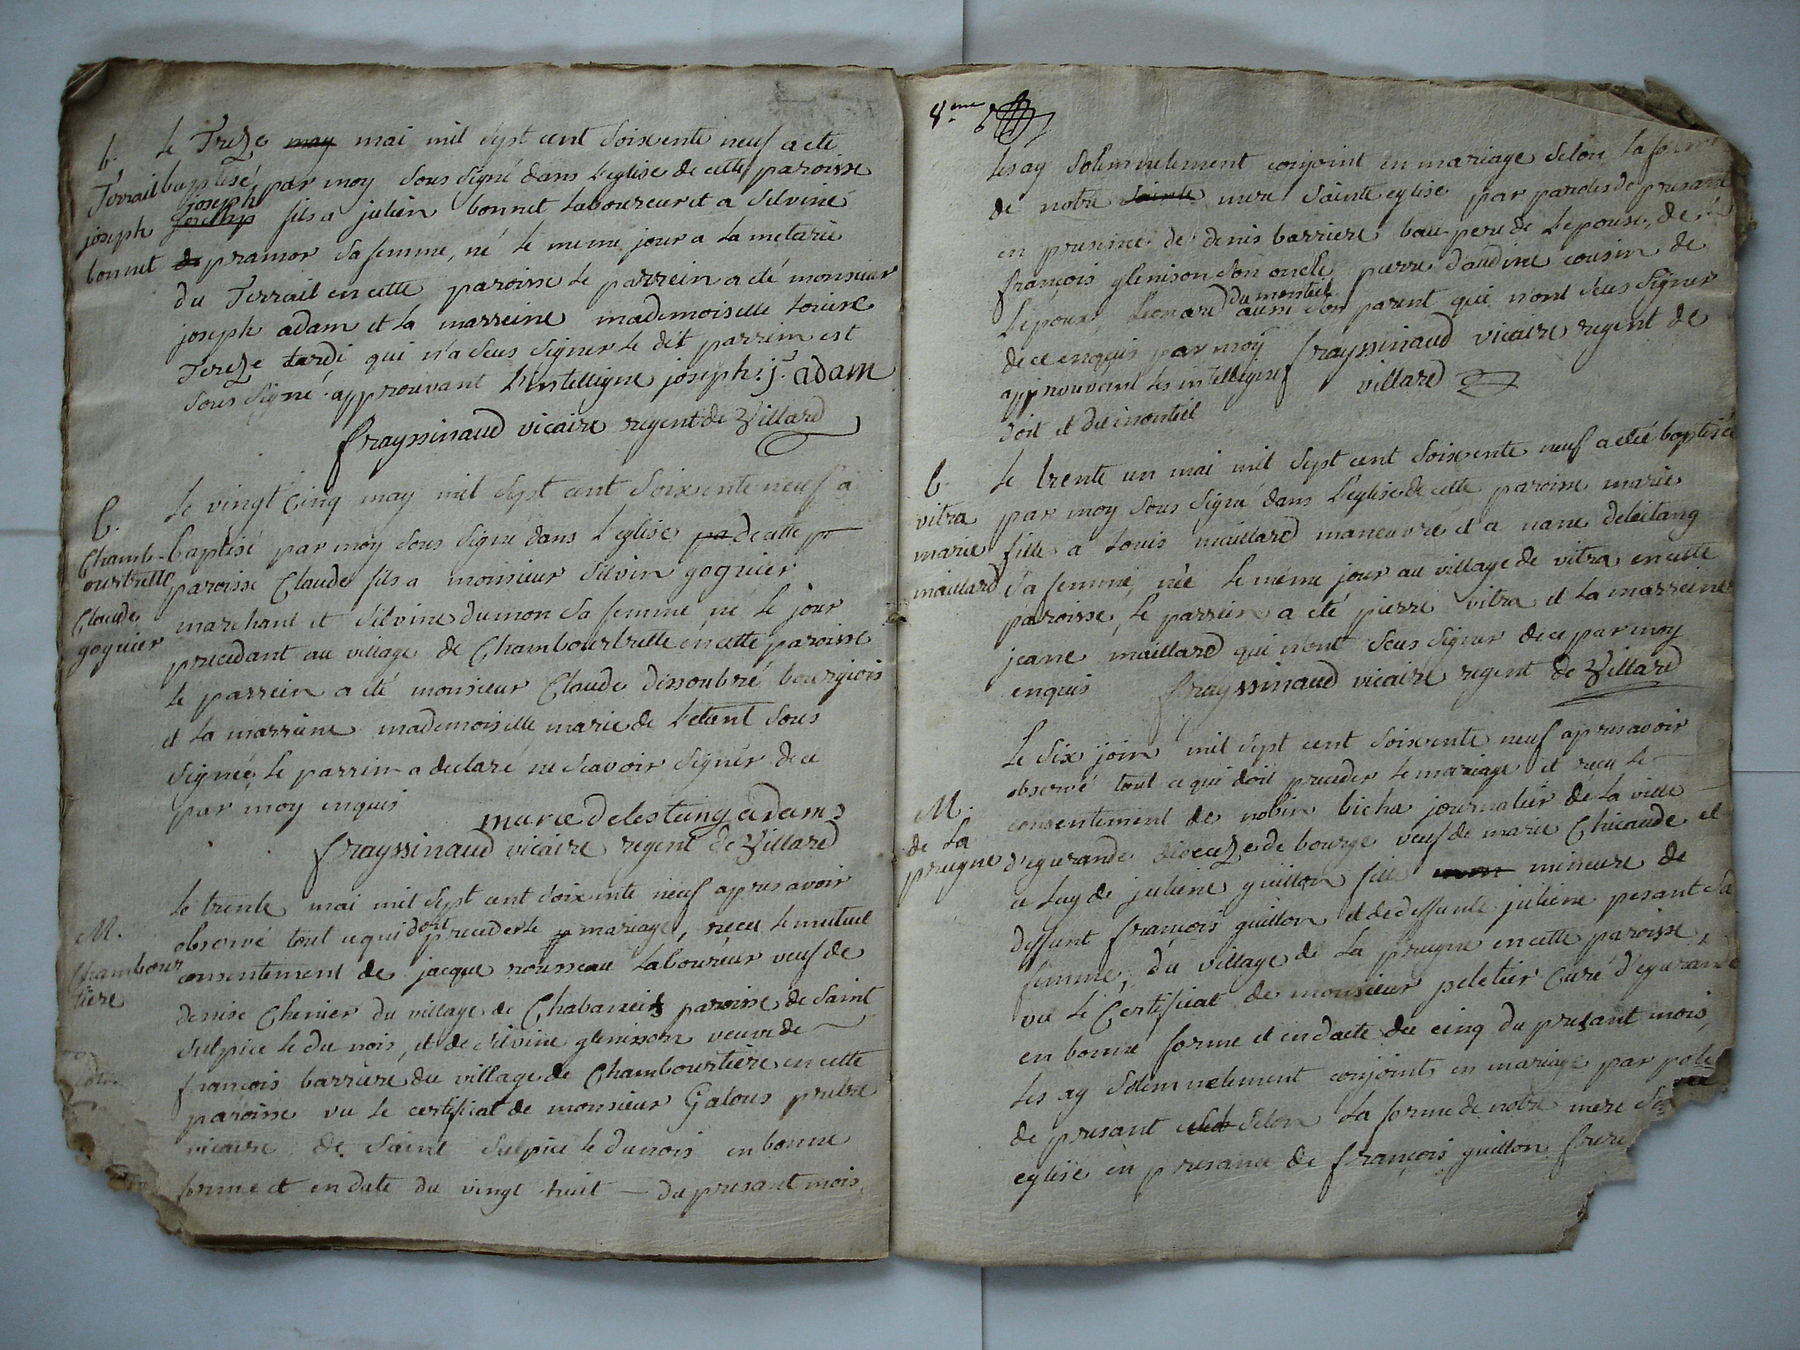 b.
Terrail
joseph
bonnet
le Treze may mai mil sept cent soixente neuf a eté
baptisé, par moy sous signé dans l'eglise de cette paroisse
joseph
joseph fils a julien bonnet laboureur et a silvine
de pramor sa femme, né le meme jour a la metarie
du Terrail en cette paroisse le parrein a eté monsieur
joseph adam et la marreine mademoiselle louise
Tereze tardi qui n'a seus signer le dit parrein est
sous signé. approuvant l'intelligne joseph: j. adam
frayssinaud vicaire regent de Villard
b.
Chamb-
ourtrette
Claude
goguier
Le vingt cinq may mil sept cent soixente neuf a
baptisé par moy sous signé dans l'eglise pa de cette p
paroisse Claude fils a monsieur silvin goguier
marchant et silvine dumon sa femme né le jour
precedant au village de Chambourtrette en cette paroisse
le parrein a eté monsieur Claude dissoubré bourgiois
et la marreine mademoiselle marie de letant sous
signée, le parrein a declaré ne scavoir signér de ce
par moy enquis
marie delestang adam
frayssinaud vicaire regent de Villard
M.
Chambour
tiere
le trente mai mil sept cent soixente neuf apres avoir
observé tout ce qui doit preceder le p mariage, recu le mutuel
consentement de jacque rousseau laboureur veuf de
denise Chenier du village de Chabaneix paroisse de saint
sulpice le du nois, et de silvine glenisson veuve de
françois barriere du village de Chambourtiere en cette
paroisse vu le certificat de monsieur Galous prétre
vicaire de saint sulpice le dunois en bonne
forme et en date du vingt huit — du presant mois,
8.eme
Les ay solemnelement conjoint en mariage selon la forme
de notre sainte mere sainte eglise par paroles de presant
en presence de denis barriere bau-pere de l'epouse, de
françois glenison son oncle pierre daudine cousin de
du monteil
l'epoux, leonard aussi son parent qui n'ont seus signer
de ce enquis par moy frayssinaud vicaire regent de
approuvant les intellignes villard
doit et du monteil
b.
vitra
marie
maillard
Le trente un mai mil sept cent soixente neuf a eté baptisée
par moy sous signé dans l'eglise de cette paroisse marie
fille a louis maillard maneuvre et a nane deleitang
sa femme, née le méme jour au village de vitra en cette
paroisse, le parrein a eté pierre vitra et la marreine
jeane maillard qui n'ont seus signer de ce par moy
enquis frayssinaud vicaire regent de Villard
M.
de la
prugne
Le six join mil sept cent soixente neuf apres avoir
observé tout ce qui doit preceder le mariage et recu le
consentement de nobin bicha journalier de la ville
d'egurande dioceze de bourge veuf de marie Chicaude et
celuy de juliene guillon fille mineure de
deffunt françois guillon et de deffunte juliene pesant sa
femme, du village de la prugne en cette paroisse,
vu le Certificat de monsieur peletier Curé d'egurande
en bonne forme et en dacte du cinq du presant mois,
Les ay solemnelement conjoints en mariage par
de presant selon la forme de notre mere
eglise en presance de françois guillon frere